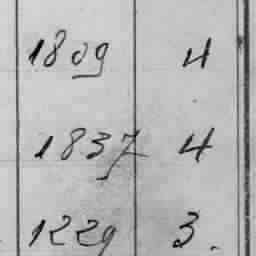 1809 4
1837 4
1229 3.